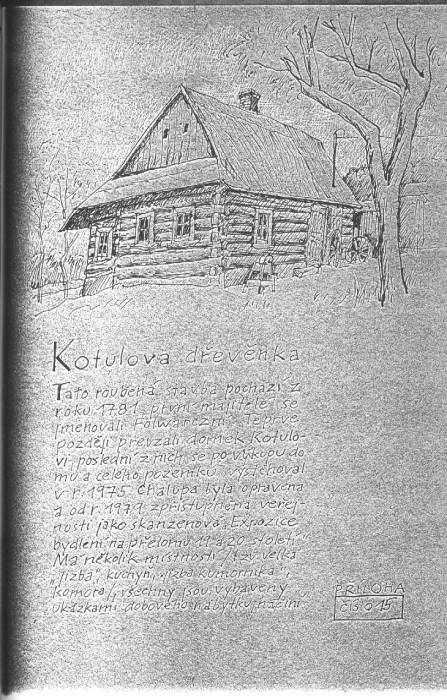 Kotulova dřevěnka
Tato roubená stavba pochází z
roku 1781, první majitelé se
jmenovali Folwarczni. Teprve
později převzali domek Kotulo-
vi, poslední z nich se po výkupu do
mu a celého pozemku vystěhoval
v r. 1975. Chalupa byla opravena
a od r. 1979 zpřístupněna veřej-
nosti jako skanzenová "Expozice
bydlení na přelomu 19. a 20. století".
Má několik místností /tzv. velká
"jizba", kuchyň, "jizba komornika",
komora/, všechny jsou vybaveny
ukázkami dobového nábytku, náčiní
PŘÍLOHA
ČÍSLO 15